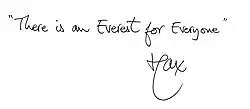 "There is an Everest for Everyone"
Max